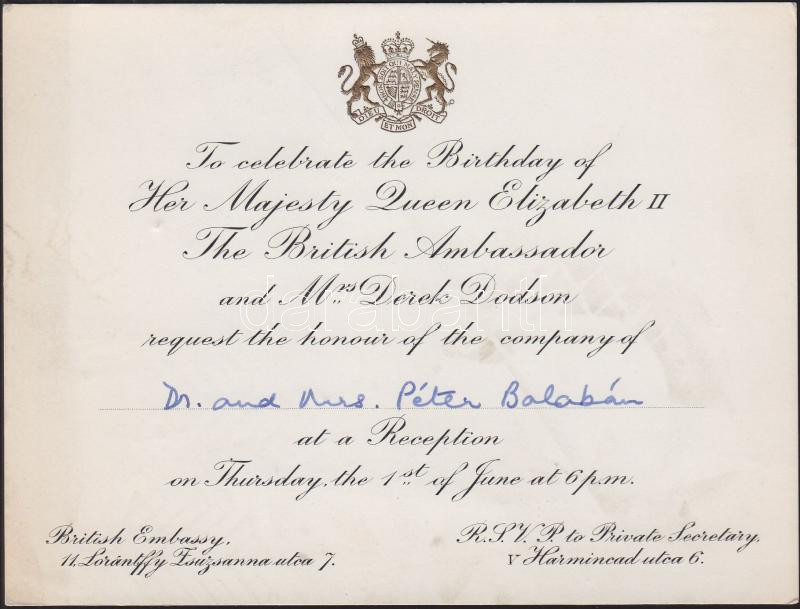 HONI SOIT QUI MAL Y PENSE
DIEU ET MON DROIT
To celebrate the Birthday of
Her Majesty Queen Elizabeth II
The British Ambassador
and Mrs Derek Dodson
request the honour of the company of
Dr. and Mrs. Péter Balabán
at a Reception
on Thursday, the 1st of June at 6 p.m.
British Embassy,
11. Lorántffy Zsuzsanna utca 7.
R.S.V.P. to Private Secretary,
V Harmincad utca 6.
darabanth